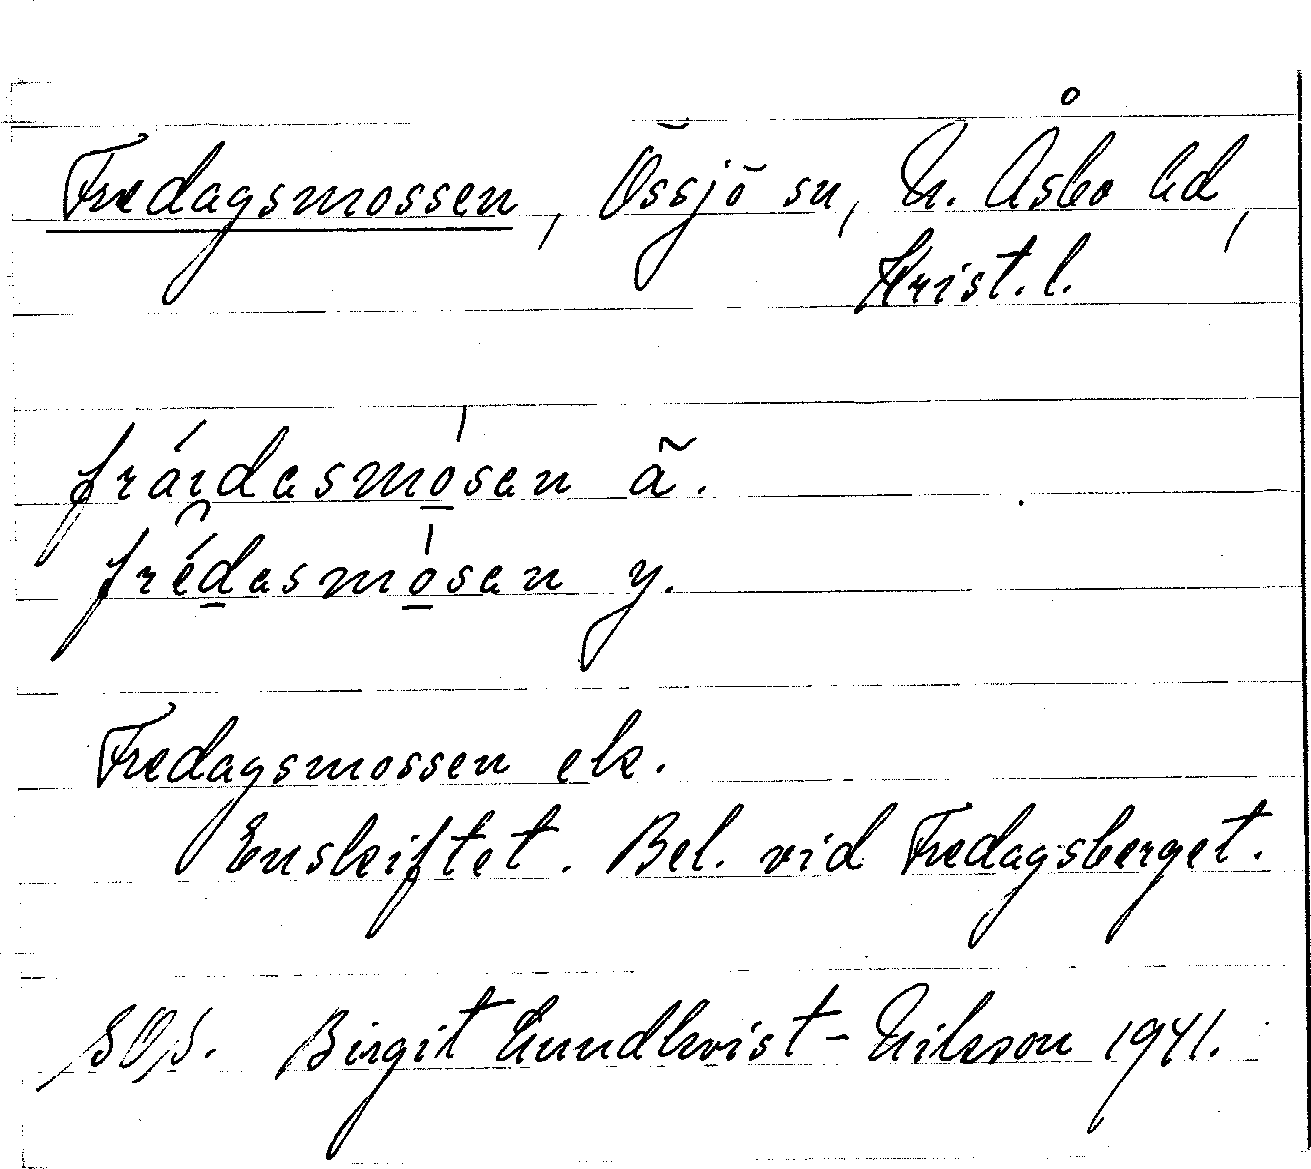 Fredagsmossen, Össjö sn, N. Åsbo hd,
Krist. l.
fráıdasmòsen ä.
frédasmòsen y.
Fredagsmossen ek.
Enskiftet. Bel. vid Fredagsberget.
SOS. Birgit Lundkvist-Nilsson 1941.